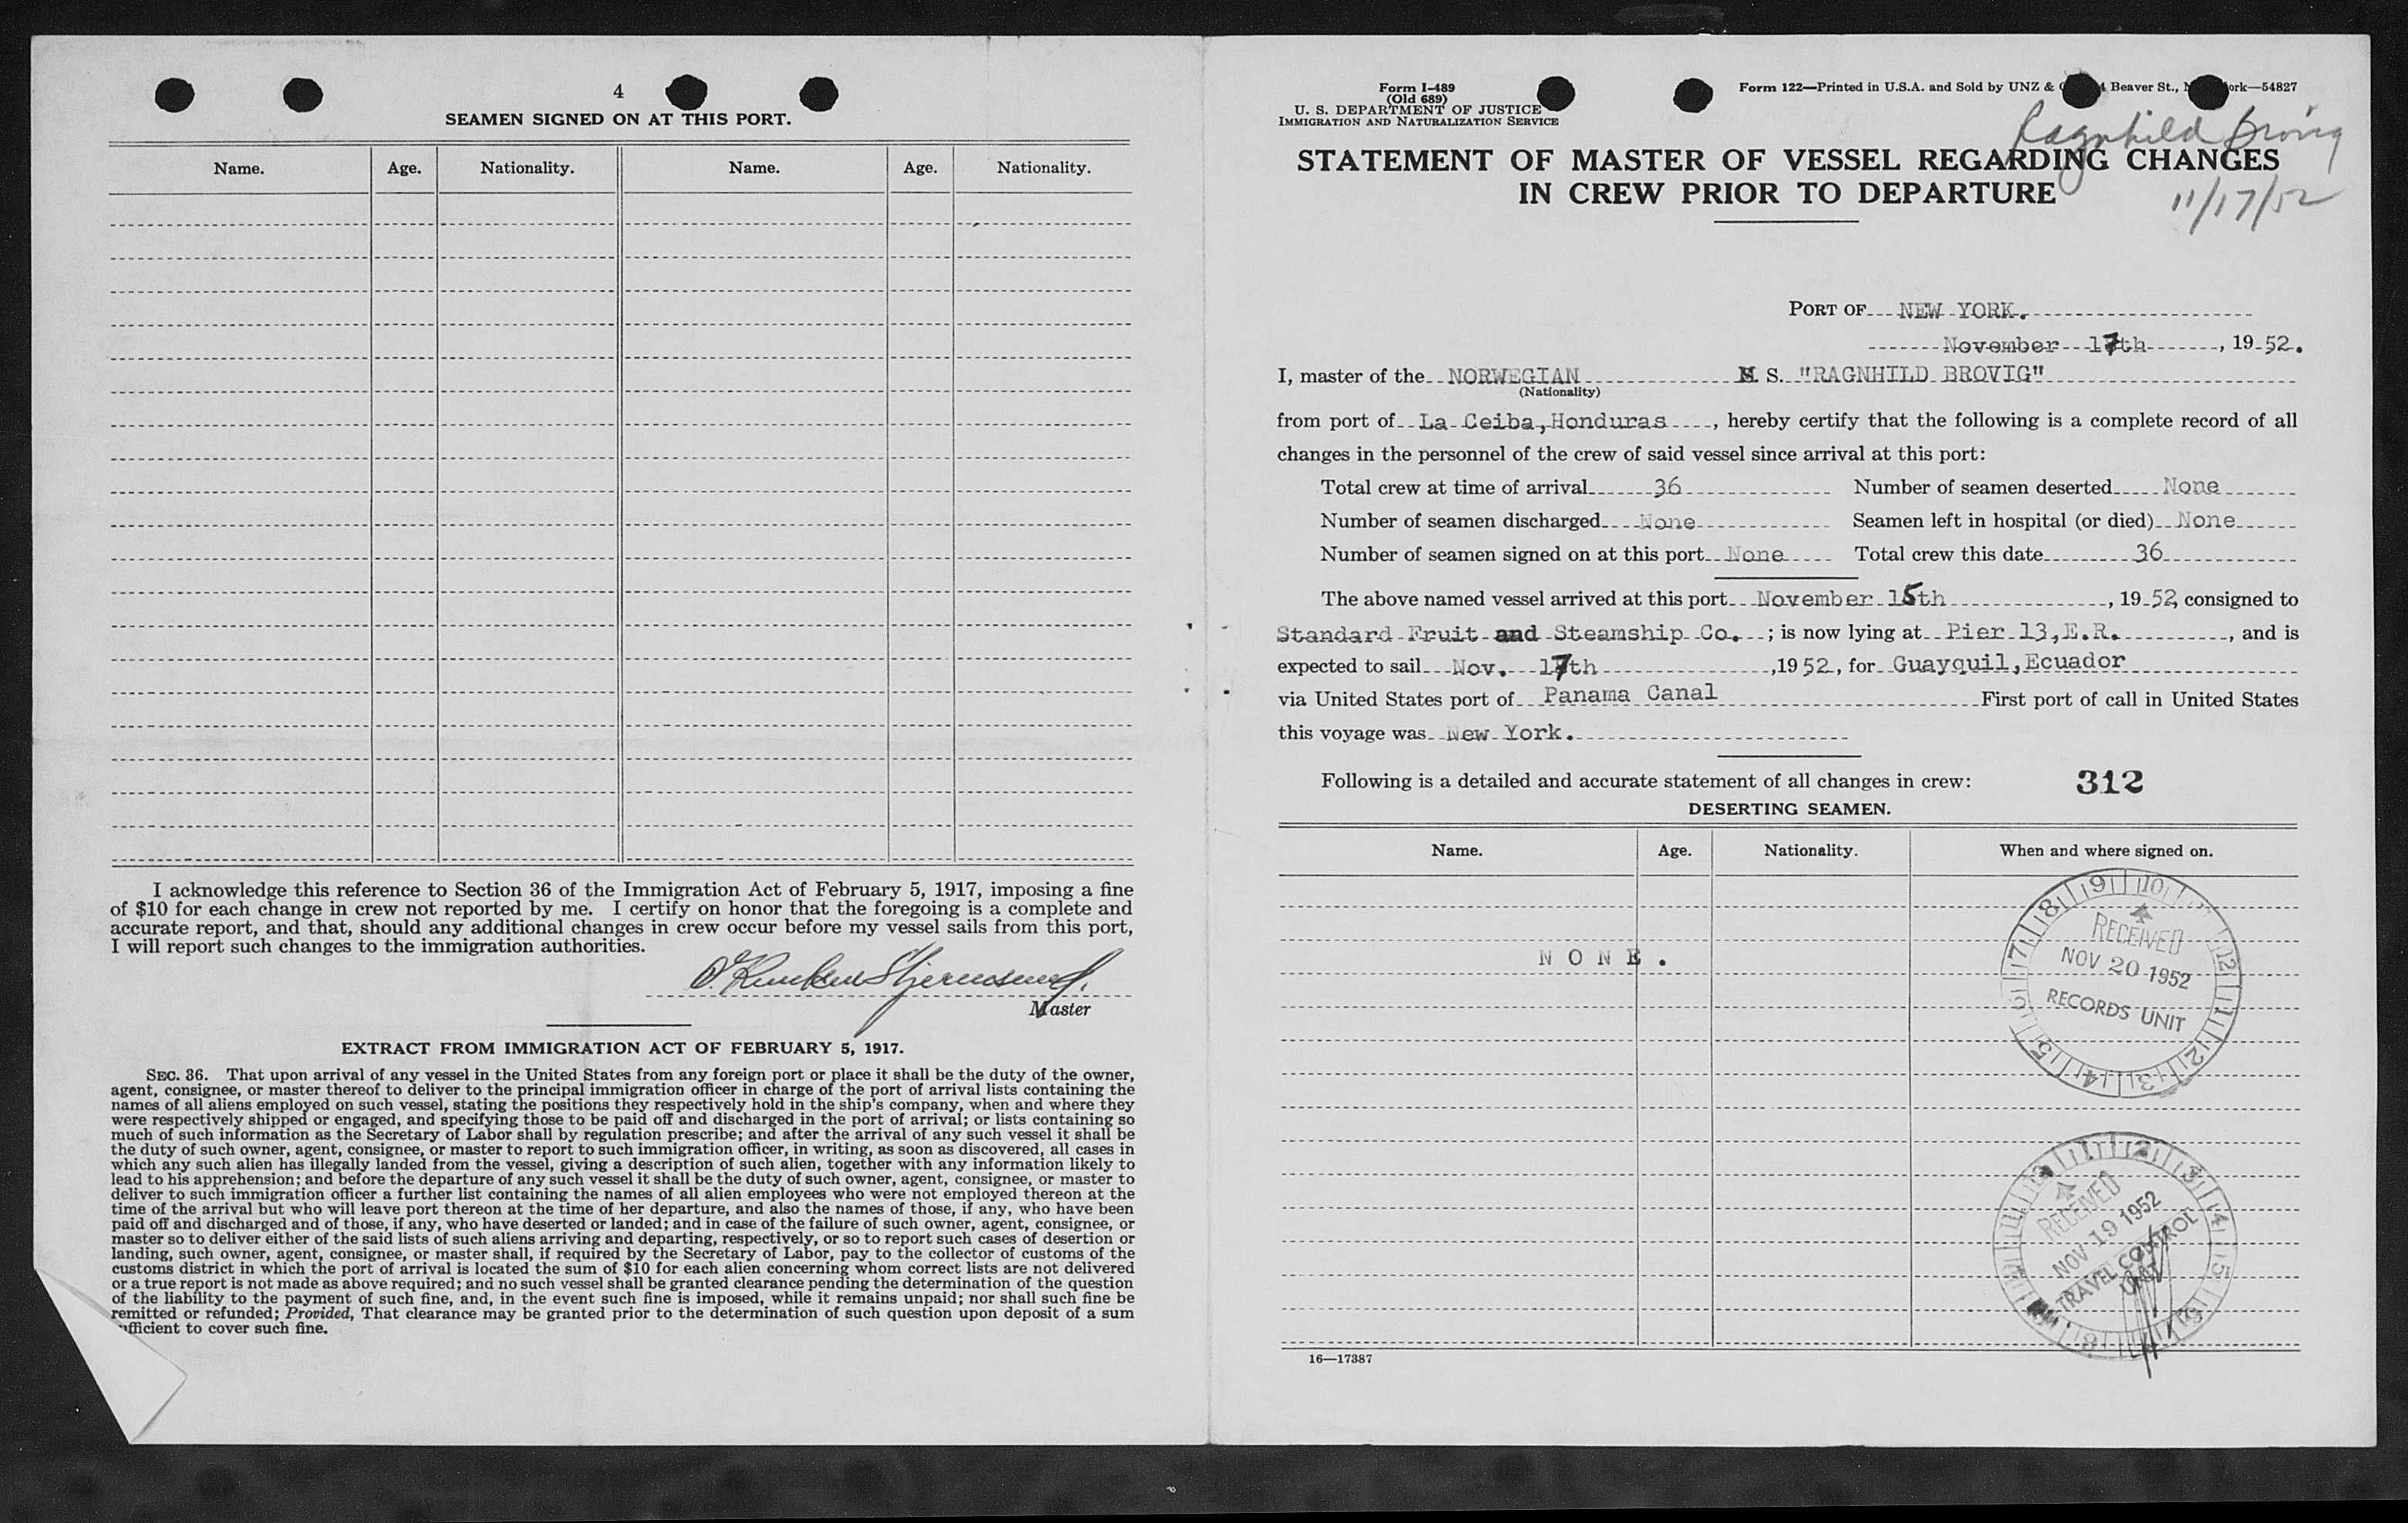 4
SEAMEN SIGNED ON AT THIS PORT.
Name. Age. Nationality. Name. Age. Nationality.
I acknowledge this reference to Section 36 of the Immigration Act of February 5, 1917, imposing a fine
of $10 for each change in crew not reported by me. I certify on honor that the foregoing is a complete and
accurate report, and that, should any additional changes in crew occur before my vessel sails from this port,
I will report such changes to the immigration authorities.
Master
EXTRACT FROM IMMIGRATION ACT OF FEBRUARY 5, 1917.
SEC. 36. That upon arrival of any vessel in the United States from any foreign port or place it shall be the duty of the owner,
agent, consignee, or master thereof to deliver to the principal immigration officer in charge of the port of arrival lists containing the
names of all aliens employed on such vessel, stating the positions they respectively hold in the ship's company, when and where they
were respectively shipped or engaged, and specifying those to be paid off and discharged in the port of arrival; or lists containing so
much of such information as the Secretary of Labor shall by regulation prescribe; and after the arrival of any such vessel it shall be
the duty of such owner, agent, consignee, or master to report to such immigration officer, in writing, as soon as discovered, all cases in
which any such alien has illegally landed from the vessel, giving a description of such alien, together with any information likely to
lead to his apprehension; and before the departure of any such vessel it shall be the duty of such owner, agent, consignee, or master to
deliver to such immigration officer a further list containing the names of all alien employees who were not employed thereon at the
time of the arrival but who will leave port thereon at the time of her departure, and also the names of those, if any, who have been
paid off and discharged and of those, if any, who have deserted or landed; and in case of the failure of such owner, agent, consignee, or
master so to deliver either of the said lists of such aliens arriving and departing, respectively, or so to report such cases of desertion or
landing, such owner, agent, consignee, or master shall, if required by the Secretary of Labor, pay to the collector of customs of the
customs district in which the port of arrival is located the sum of $10 for each alien concerning whom correct lists are not delivered
or a true report is not made as above required; and no such vessel shall be granted clearance pending the determination of the question
of the liability to the payment of such fine, and, in the event such fine is imposed, while it remains unpaid; nor shall such fine be
remitted or refunded; Provided, That clearance may be granted prior to the determination of such question upon deposit of a sum
ufficient to cover such fine.
Form I-489
(Old 689)
U. S. DEPARTMENT OF JUSTICE
IMMIGRATION AND NATURALIZATION SERVICE
Form 122—Printed in U.S.A. and Sold by UNZ & Beaver St., ork—54827
Ragnhild Brovig
11/17/52
STATEMENT OF MASTER OF VESSEL REGARDING CHANGES
IN CREW PRIOR TO DEPARTURE
PORT OF NEW YORK.
November 17th, 1952.
I, master of the NORWEGIAN M. S. "RAGNHILD BROVIG"
(Nationality)
from port of La Ceiba,Honduras, hereby certify that the following is a complete record of all
changes in the personnel of the crew of said vessel since arrival at this port:
Total crew at time of arrival 36 Number of seamen deserted None
Number of seamen discharged None Seamen left in hospital (or died) None
Number of seamen signed on at this port None Total crew this date 36
The above named vessel arrived at this port November 15th, 1952, consigned to
Standard Fruit and Steamship Co.; is now lying at Pier 13,E.R., and is
expected to sail Nov. 17th, 1952, for Guayquil,Ecuador
via United States port of Panama Canal First port of call in United States
this voyage was New York.
Following is a detailed and accurate statement of all changes in crew: 312
DESERTING SEAMEN.
Name. Age. Nationality. When and where signed on.
NONE.
RECEIVED
NOV 20 1952
RECORDS UNIT
RECEIVED
NOV 19 1952
TRAVEL CONTROL
UNIT
16—17387